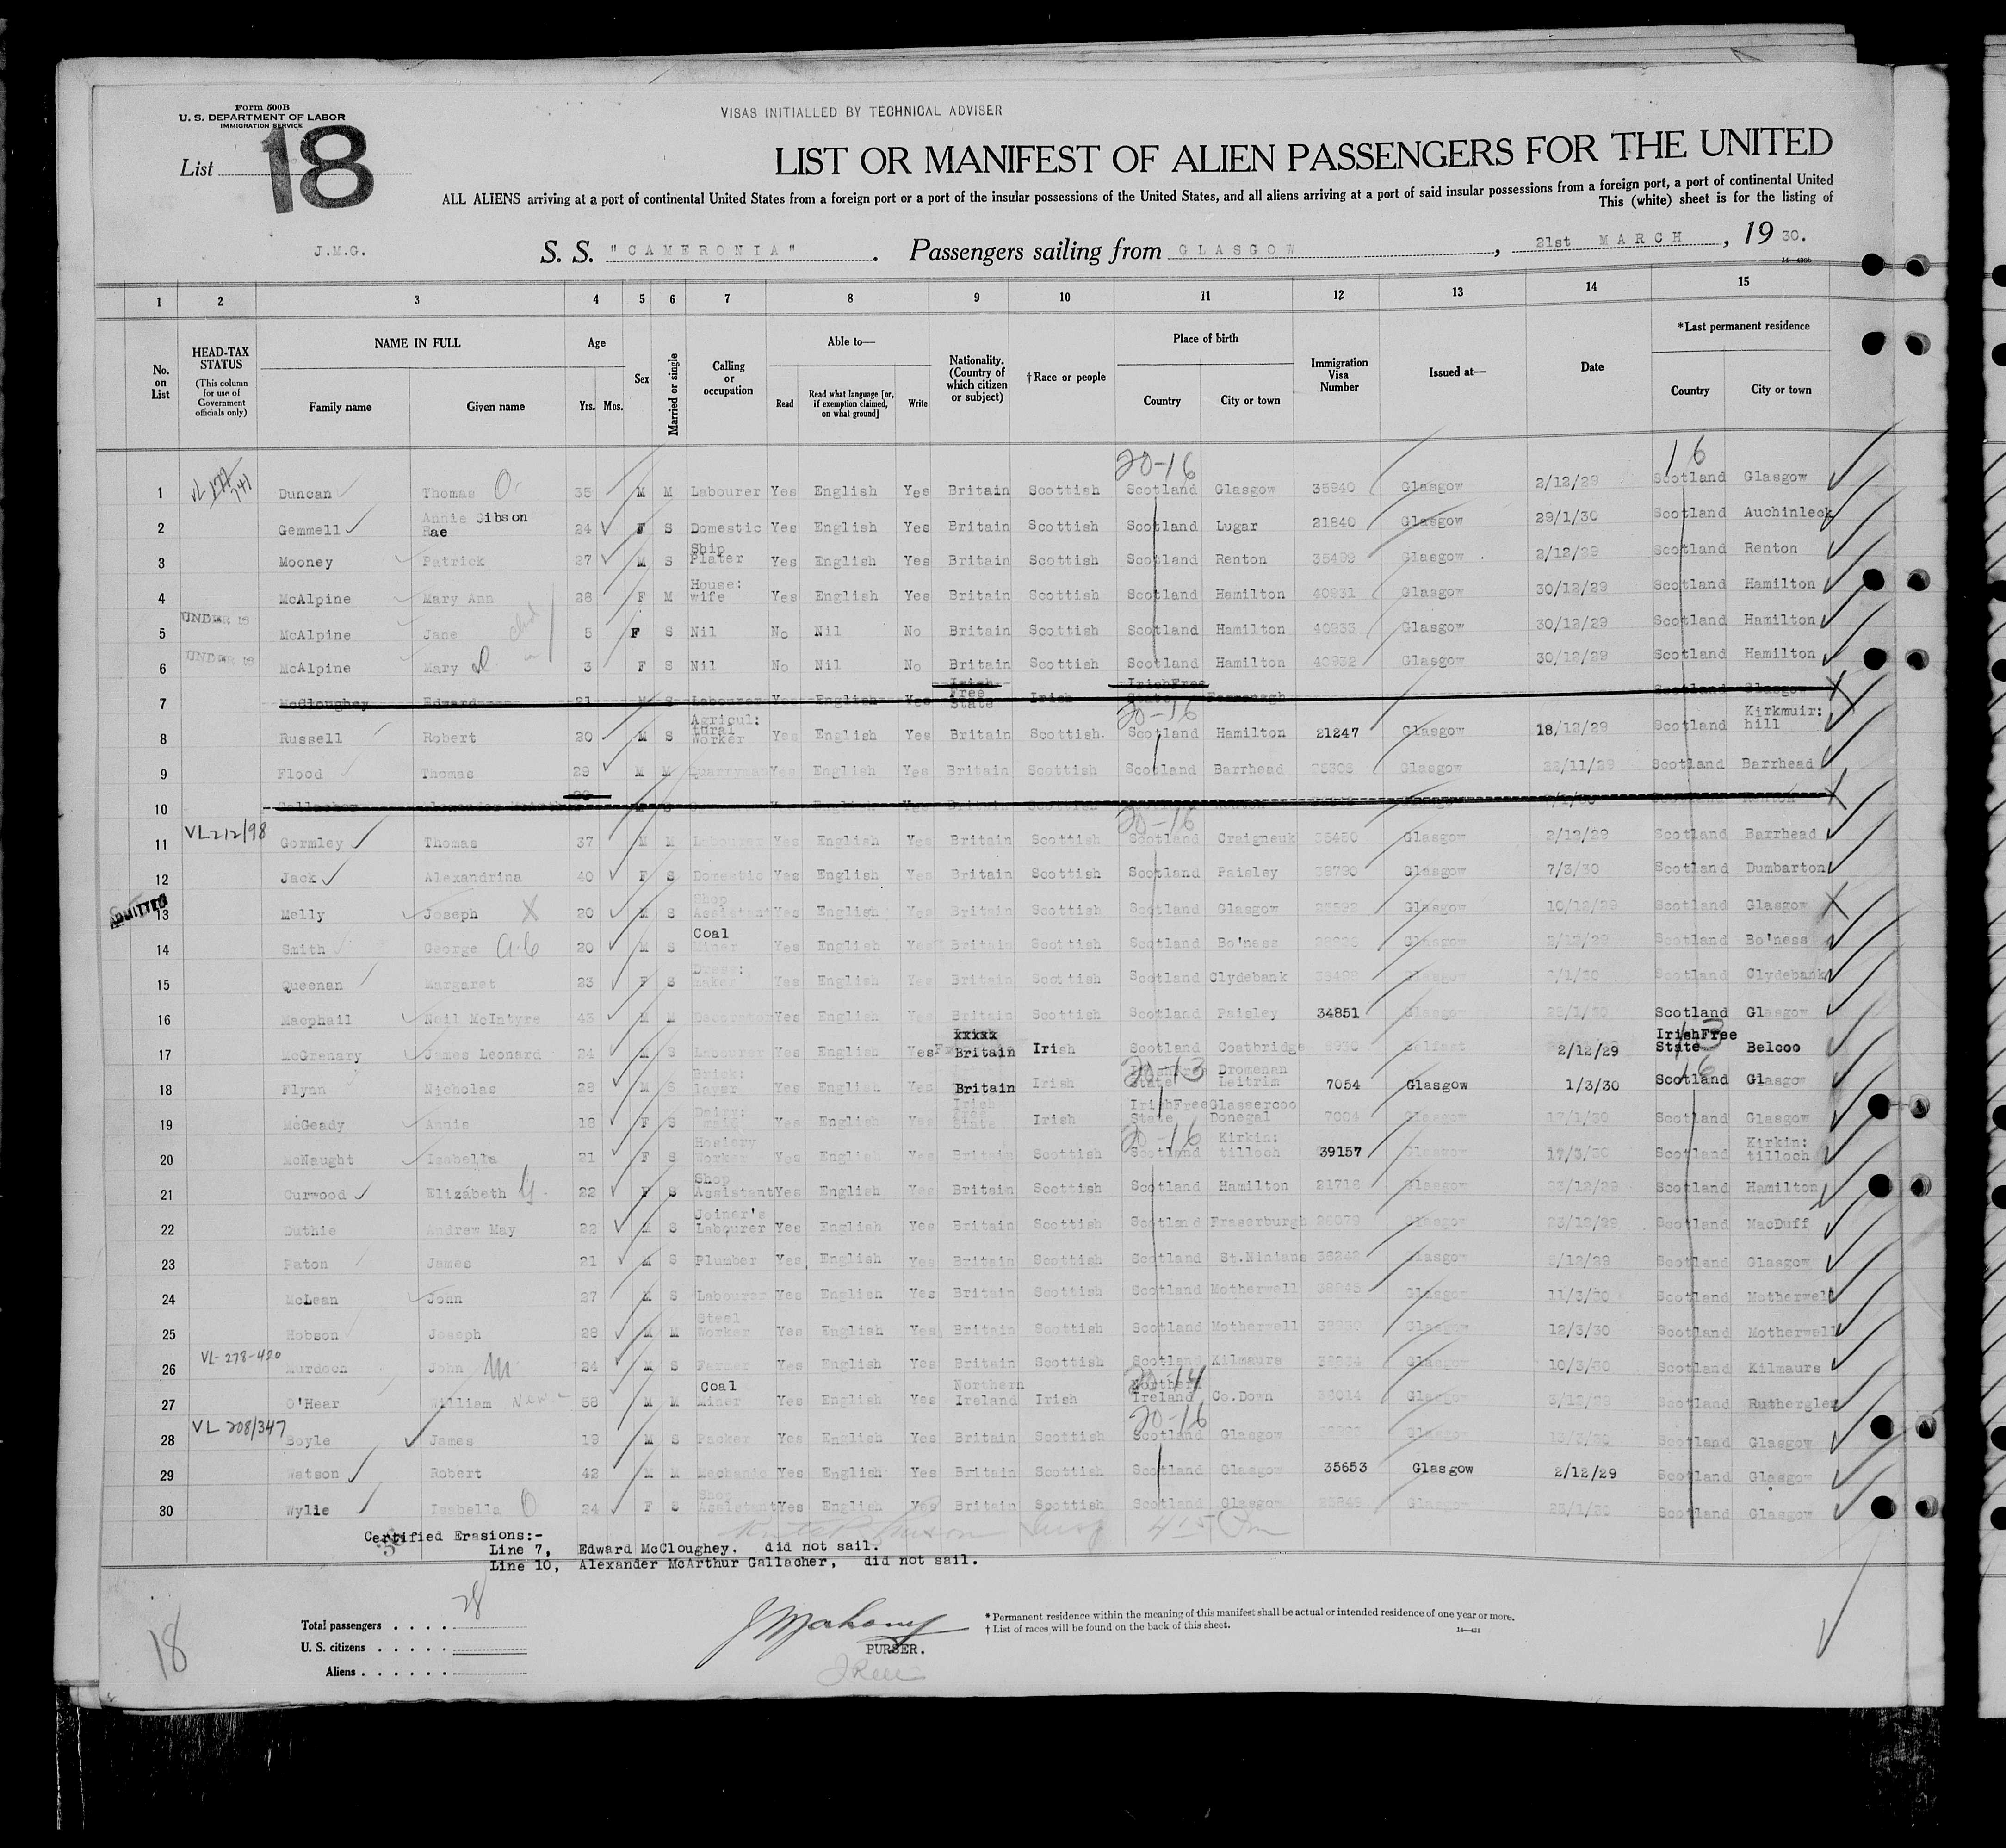 Form 500B
U. S. DEPARTMENT OF LABOR
IMMIGRATION SERVICE
VISAS INITIALLED BY TECHNICAL ADVISER
List 18
LIST OR MANIFEST OF ALIEN PASSENGERS FOR THE UNITED
ALL ALIENS arriving at a port of continental United States from a foreign port or a port of the insular possessions of the United States, and all aliens arriving at a port of said insular possessions from a foreign port, a port of continental United
This (white) sheet is for the listing of
J.M.G. S. S. "CAMERONIA". Passengers sailing from GLASGOW, 21st MARCH, 1930.
14—430b
1 2 3 4 5 6 7 8 9 10 11 12 13 14 15
No. on List
HEAD-TAX STATUS
(This column for use of Government officials only)
NAME IN FULL
Family name Given name
Age
Yrs. Mos.
Sex
Married or single
Calling or occupation
Able to—
Read Read what language [or, if exemption claimed, on what ground] Write
Nationality. (Country of which citizen or subject)
†Race or people
Place of birth
Country City or town
Immigration Visa Number
Issued at—
Date
*Last permanent residence
Country City or town
20-16 16
1 Duncan Thomas 35 M M Labourer Yes English Yes Britain Scottish Scotland Glasgow 35840 Glasgow 2/12/29 Scotland Glasgow
2 Gemmell Annie Gibson Rae 24 F S Domestic Yes English Yes Britain Scottish Scotland Lugar 21840 Glasgow 29/1/30 Scotland Auchinleck
3 Mooney Patrick 27 M S Ship Plater Yes English Yes Britain Scottish Scotland Renton 35499 Glasgow 2/12/29 Scotland Renton
4 McAlpine Mary Ann 28 F M House: wife Yes English Yes Britain Scottish Scotland Hamilton 40931 Glasgow 30/12/29 Scotland Hamilton
UNDER 16
5 McAlpine Jane 5 F S Nil No Nil No Britain Scottish Scotland Hamilton 40933 Glasgow 30/12/29 Scotland Hamilton
UNDER 16
6 McAlpine Mary 3 F S Nil No Nil No Britain Scottish Scotland Hamilton 40932 Glasgow 30/12/29 Scotland Hamilton
7 McCloughey Edward 21 M S Labourer Yes English Yes Irish Free State Irish IrishFree State Fermanagh Scotland Glasgow
20-16
8 Russell Robert 20 M S Agricul: tural Worker Yes English Yes Britain Scottish. Scotland Hamilton 21247 Glasgow 18/12/29 Scotland Kirkmuir: hill
9 Flood Thomas 29 M M Quarryman Yes English Yes Britain Scottish Scotland Barrhead Glasgow 22/11/29 Scotland Barrhead
10 Gallacher Alexander McArthur 26 M S Yes English Yes Britain Scottish Scotland Renton Glasgow Scotland Renton
20-16
VL212/98
11 Gormley Thomas 37 M M Labourer Yes English Yes Britain Scottish Scotland Craigneuk 35450 Glasgow 2/12/29 Scotland Barrhead
12 Jack Alexandrina 40 F S Domestic Yes English Yes Britain Scottish Scotland Paisley 38790 Glasgow 7/3/30 Scotland Dumbarton
ADMITTED
13 Melly Joseph X 20 M S Shop Assistant Yes English Yes Britain Scottish Scotland Glasgow Glasgow 10/12/29 Scotland Glasgow
14 Smith George 20 M S Coal Miner Yes English Yes Britain Scottish Scotland Bo'ness Glasgow 2/12/29 Scotland Bo'ness
15 Queenan Margaret 23 F S Dress: maker Yes English Yes Britain Scottish Scotland Clydebank Glasgow Scotland Clydebank
16 Macphail Neil McIntyre 43 M M Decorator Yes English Yes Britain Scottish Scotland Paisley 34851 Glasgow Scotland Glasgow
17 McGrenary James Leonard 24 M S Labourer Yes English Yes xxxxx Britain Irish Scotland Coatbridge 8930 Belfast 2/12/29 IrishFree State Belcoo
20-13 16
18 Flynn Nicholas 28 M S Brick: layer Yes English Yes Britain Irish State Dromenan Leitrim 7054 Glasgow 1/3/30 Scotland Glasgow
19 McGeady Annie 19 F S Dairy: maid Yes English Yes Irish Free State Irish IrishFree State Glassercoo Donegal 7004 Glasgow 17/1/30 Scotland Glasgow
20-16
20 McNaught Isabella 21 F S Hosiery Worker Yes English Yes Britain Scottish Scotland Kirkin: tilloch 39157 Glasgow 17/3/30 Scotland Kirkin: tilloch
21 Curwood Elizabeth 22 F S Shop Assistant Yes English Yes Britain Scottish Scotland Hamilton 21718 Glasgow 23/12/29 Scotland Hamilton
22 Duthie Andrew May 22 M S Joiner's Labourer Yes English Yes Britain Scottish Scotland Fraserburgh 26079 Glasgow 23/12/29 Scotland MacDuff
23 Paton James 21 M S Plumber Yes English Yes Britain Scottish Scotland St.Ninians Glasgow Scotland Glasgow
24 McLean John 27 M S Labourer Yes English Yes Britain Scottish Scotland Motherwell Glasgow 11/3/30 Scotland Motherwell
25 Hobson Joseph 28 M M Steel Worker Yes English Yes Britain Scottish Scotland Motherwell Glasgow 12/3/30 Scotland Motherwell
VL-278-420
26 Murdoch John 24 M S Farmer Yes English Yes Britain Scottish Scotland Kilmaurs Glasgow 10/3/30 Scotland Kilmaurs
20-14
27 O'Hear William 58 M M Coal Miner Yes English Yes Northern Ireland Irish Northern Ireland Co.Down Glasgow 3/12/29 Scotland Rutherglen
VL 208/347 20-16
28 Boyle James 19 M S Packer Yes English Yes Britain Scottish Scotland Glasgow Glasgow Scotland Glasgow
29 Watson Robert 42 M M Mechanic Yes English Yes Britain Scottish Scotland Glasgow 35653 Glasgow 2/12/29 Scotland Glasgow
30 Wylie Isabella 24 F S Shop Assistant Yes English Yes Britain Scottish Scotland Glasgow Glasgow 23/1/30 Scotland Glasgow
Certified Erasions:-
Line 7, Edward McCloughey. did not sail.
Line 10, Alexander McArthur Gallacher, did not sail.
18
Total passengers . . . . 28
U. S. citizens . . . . .
Aliens . . . . . .
J Mahony
PURSER.
* Permanent residence within the meaning of this manifest shall be actual or intended residence of one year or more.
† List of races will be found on the back of this sheet.
14—431